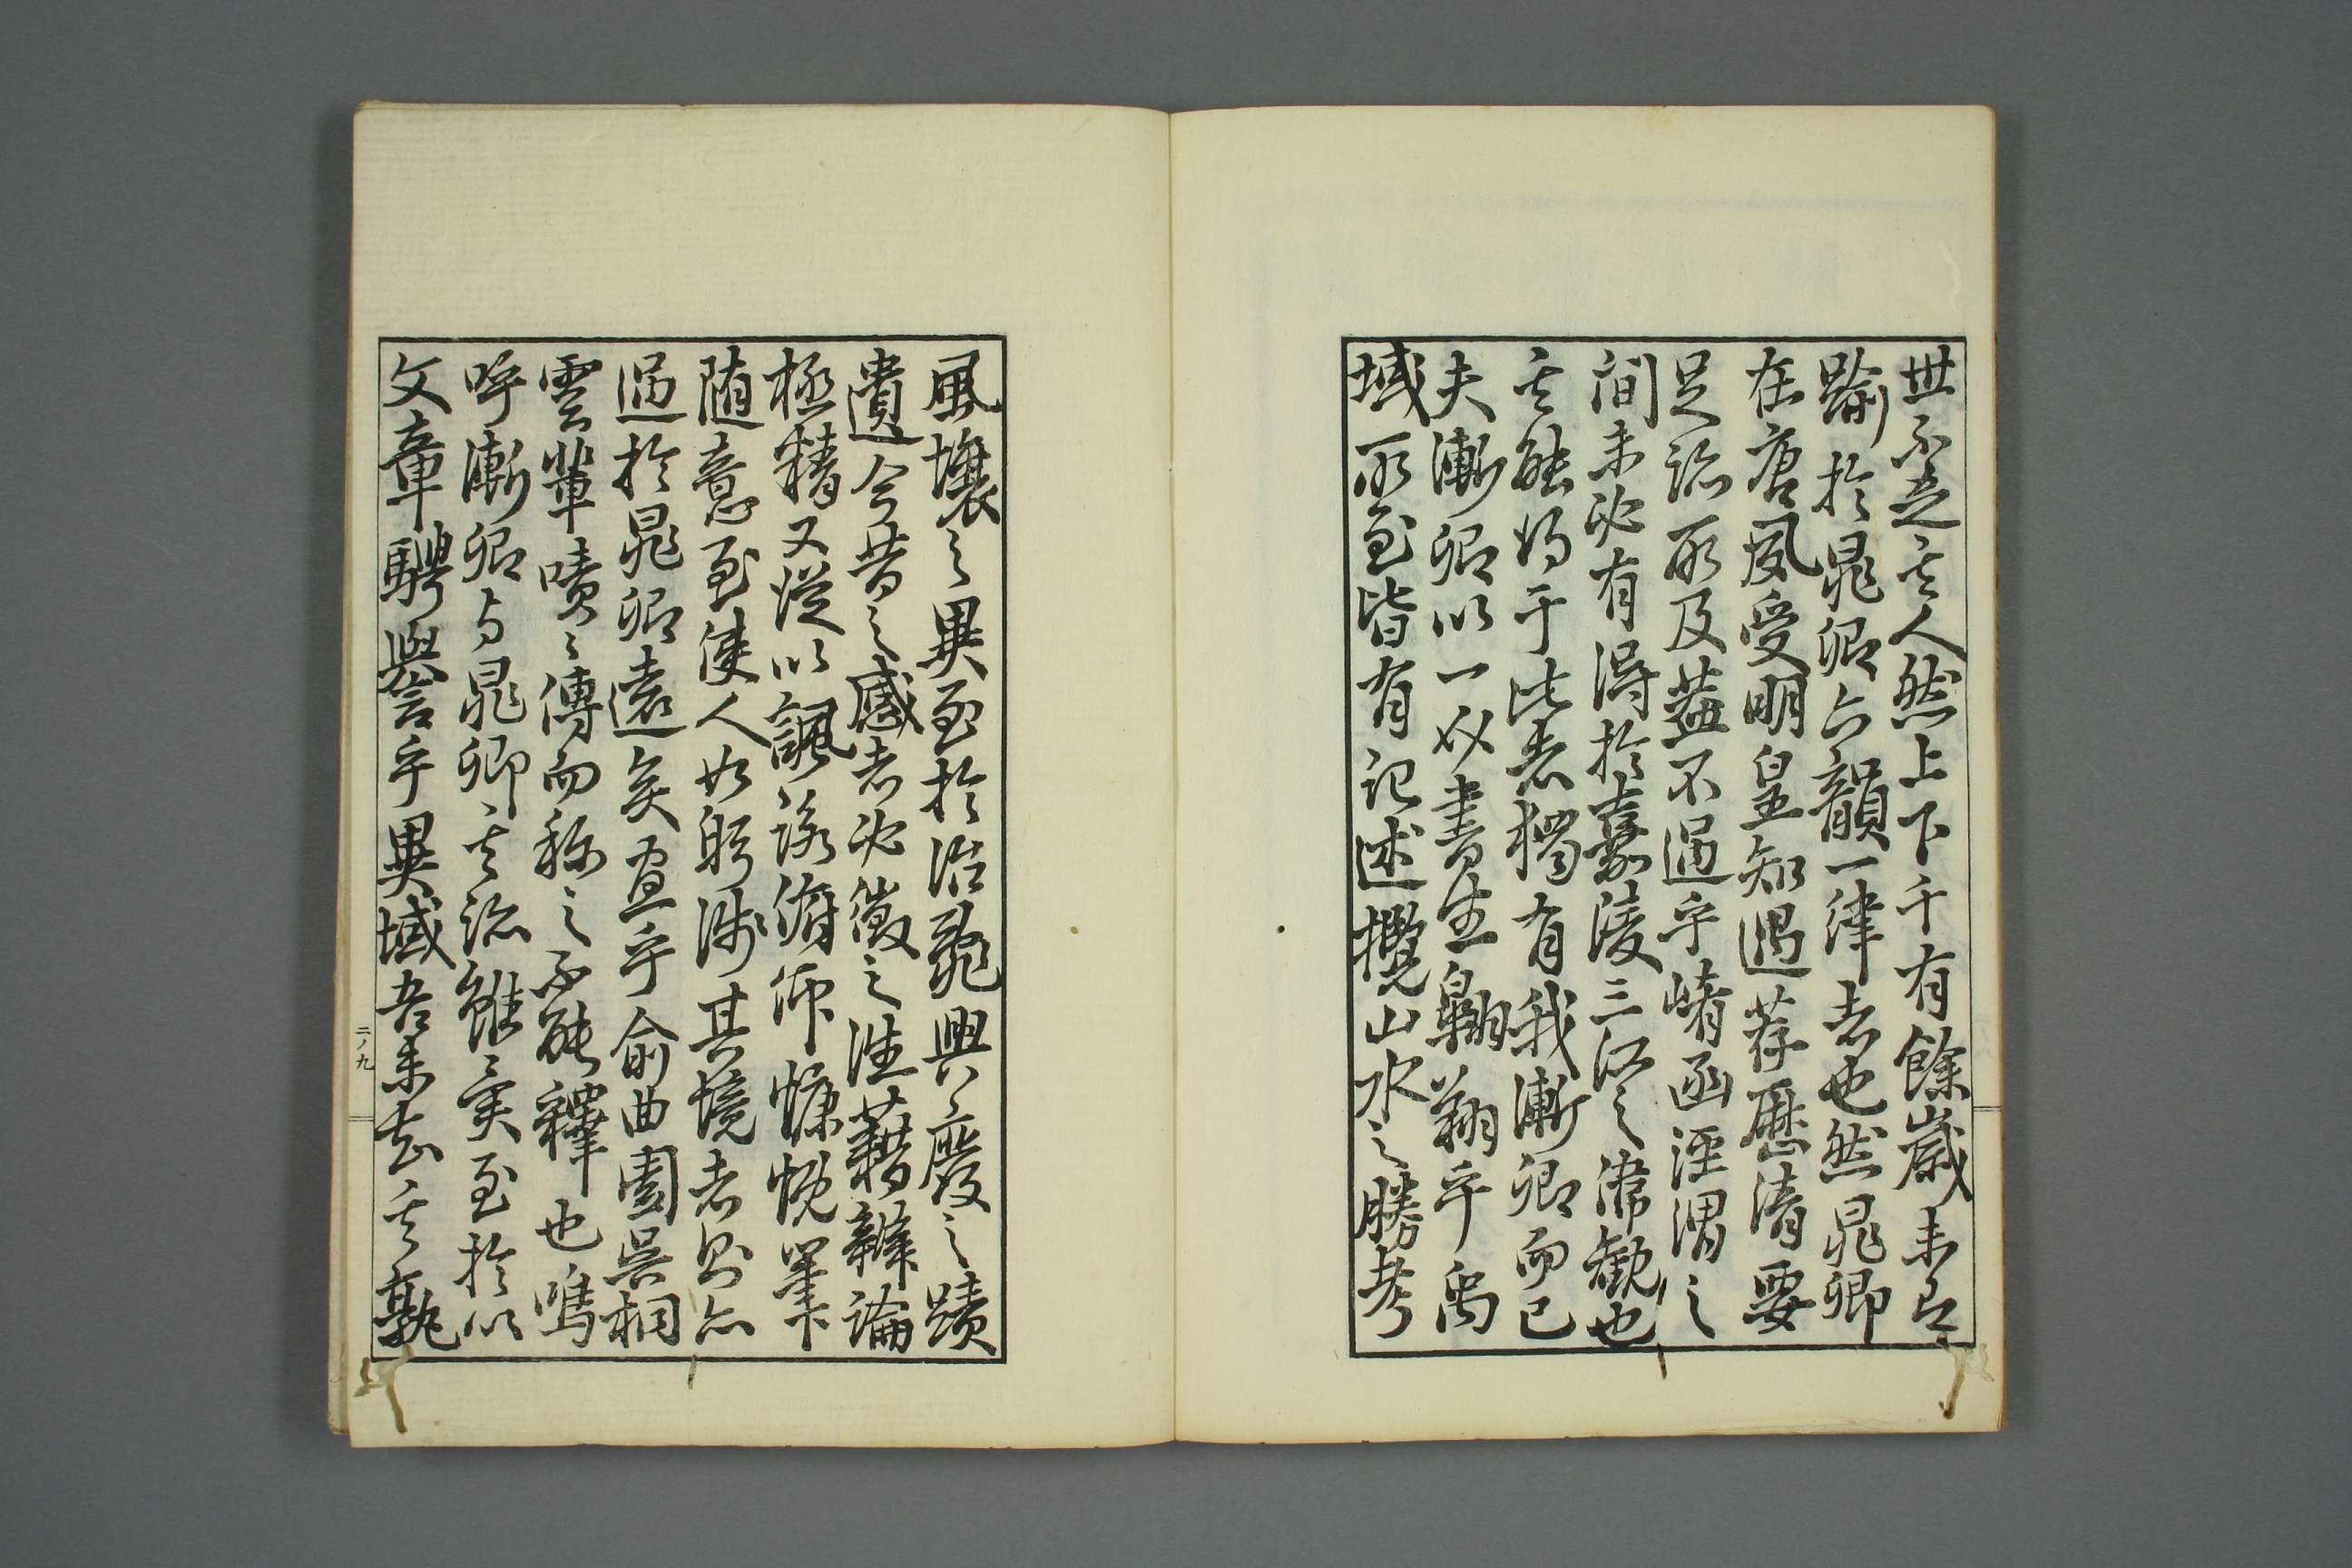 世不乏其人然上下千有餘歲未有
踰於晁卿六韻一律者也然晁卿
在唐夙受明皇知遇荐歷清要
足跡所及蓋不過乎崤函涇渭之
間未必有得於嘉陵三江之偉観也
其能為于此者獨有我漸卿而已
夫漸卿以一介書生翱翔乎禹
域所至皆有記述攬山水之勝考
風壤之異至於治亂興廢之蹟
遺今昔之感者必徵之往藉辯論
極精又從以諷詠俯仰慷慨筆
随意至使人如躬涉其境者則亦
過於晁卿遠矣宜乎俞曲園吳桐
雲輩嘖〻傳而称之不能釋也嗚
呼漸卿与晁卿其跡雖異至於以
文章騁譽乎異域吾未知其孰
二ノ九